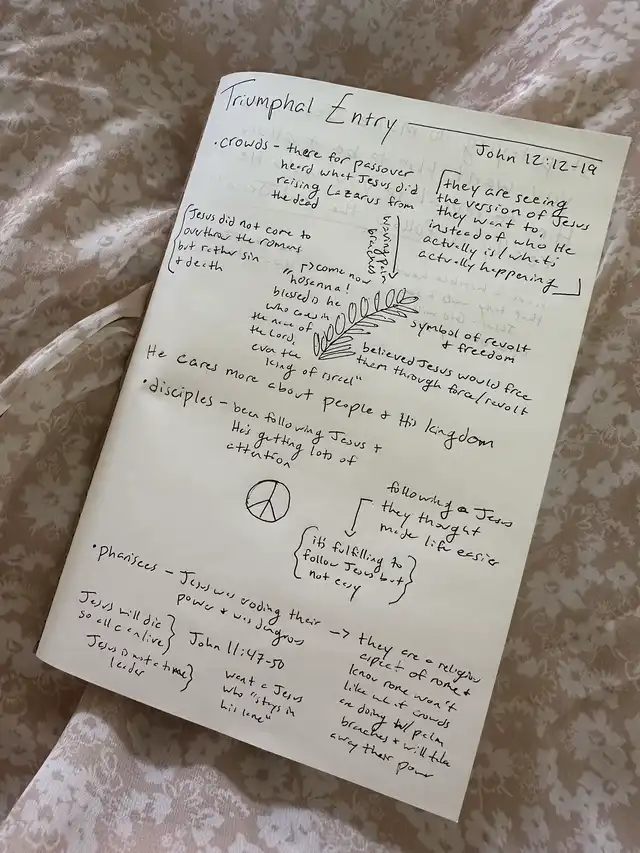 Triumphal Entry
John 12:12-19
• crowds - there for passover
heard what Jesus did
raising Lazarus from
the dead
they are seeing
the version of Jesus
they want to,
instead of who He
actually is/what's
actually happening
Jesus did not come to
overthrow the romans
but rather sin
+ death
waving palm
branches
come now
"hosanna!
blessed is he
who comes in
the name of
the Lord,
even the
king of Israel"
symbol of revolt
+ freedom
believed Jesus would free
them through force/revolt
He cares more about people + His kingdom
• disciples - been following Jesus +
He's getting lots of
attention
following a Jesus
they thought
made life easier
it's fulfilling to
follow Jesus but
not easy
• pharisees - Jesus was eroding their
power + was dangerous
Jesus will die
so all can live
John 11:47-50
Jesus is not a
leader
want a Jesus
who "stays in
his lane"
they are a religion
aspect of rome +
know rome won't
like what crowds
are doing w/ palm
branches + will take
away their power